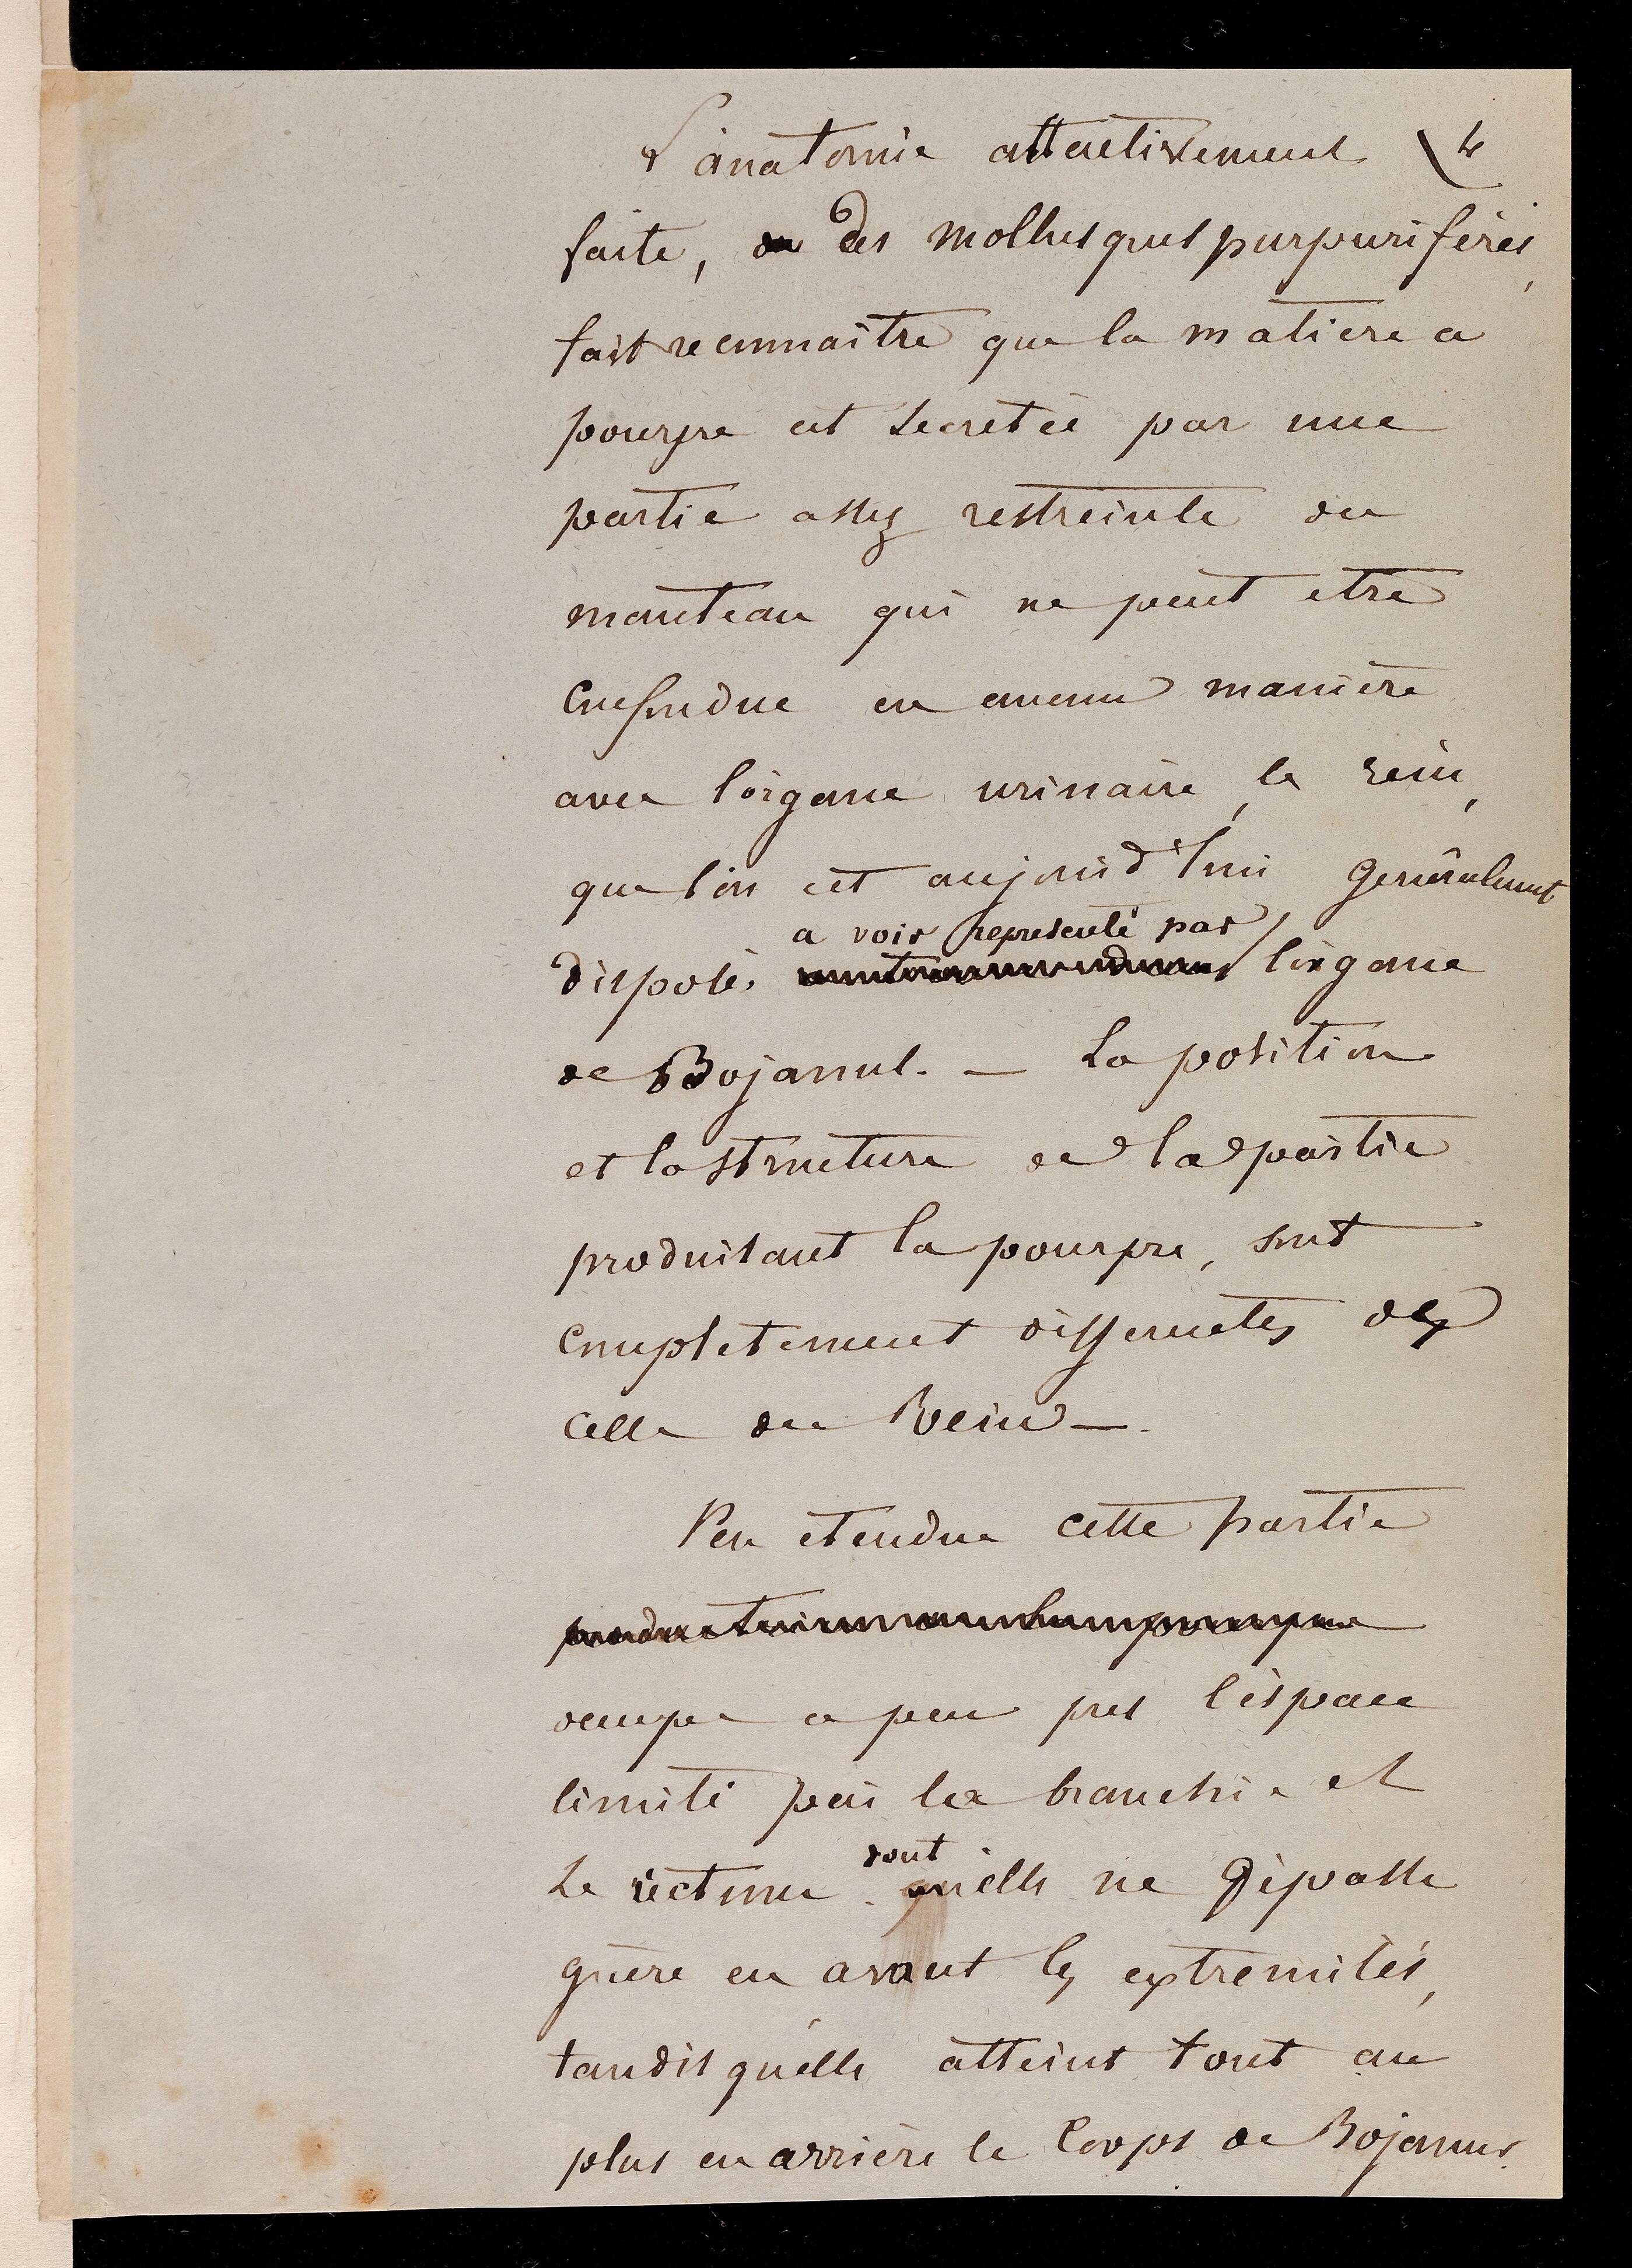 L'anatomie attentivement 4
faite, des mollusques purpurifères,
fait reconnaitre que la matiere a
pourpre est secretée par une
partie assez restreinte du
manteau qui ne peut etre
confondue en aucune manière
avec l'organe urinaire, le rein,
que l'on est aujourd'hui generalement
a voir representé par
disposé, l'organe
de Bojanus. — La position
et la structure de la partie
produisant la pourpre, sont
completement differentes de
celle du Rein —.
Peu etendue cette partie
occupe a peu pres l'espace
limité par la branchie et
le rectum dont elle ne dépasse
guère en avant les extremités,
tandis qu'elle atteint tout au
plus en arrière le Corps de Bojanus.